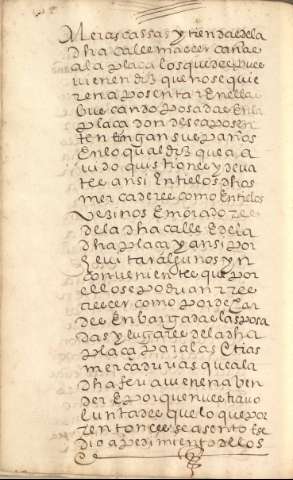 meras cassas y tiendas dela
dha calle mas cercanae
a la plaça los que de nuebo
vienen diz que no se quie
ren aposentar en ella e
buscando posadas en la
plaça donde se aposen
ten e tengan sus paños
en lo qual diz que a a
vido quistiones y deva
tes ansi entre los dhos
mercaderes como entre los
vezinos e moradores
de la dha calle e de la
dha plaça y ansi por
evitar algunos yn
convenientes que por
ello se podrian rre
creçer como por dexar
desenbargadas las posa
das y lugares de la dha
plaça para las otras
mercadurias que a la
dha feria vienen a ben
der e porque nuestra vo
luntad es que lo que por
entonces se asento e se
dio a pedimiento de los